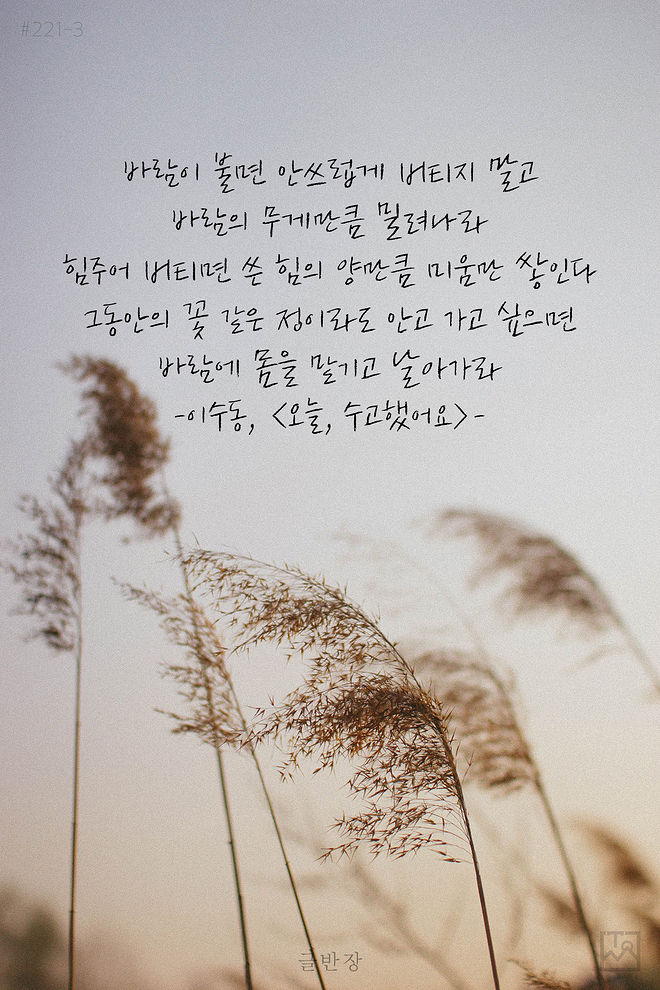 #221-3
바람이 불면 안쓰럽게 버티지 말고
바람의 무게만큼 밀려나라
힘주어 버티면 쓴 힘의 양만큼 미움만 쌓인다
그동안의 꽃 같은 정이라도 안고 가고 싶으면
바람에 몸을 맡기고 날아가라
-이수동, <오늘, 수고했어요>-
글반장